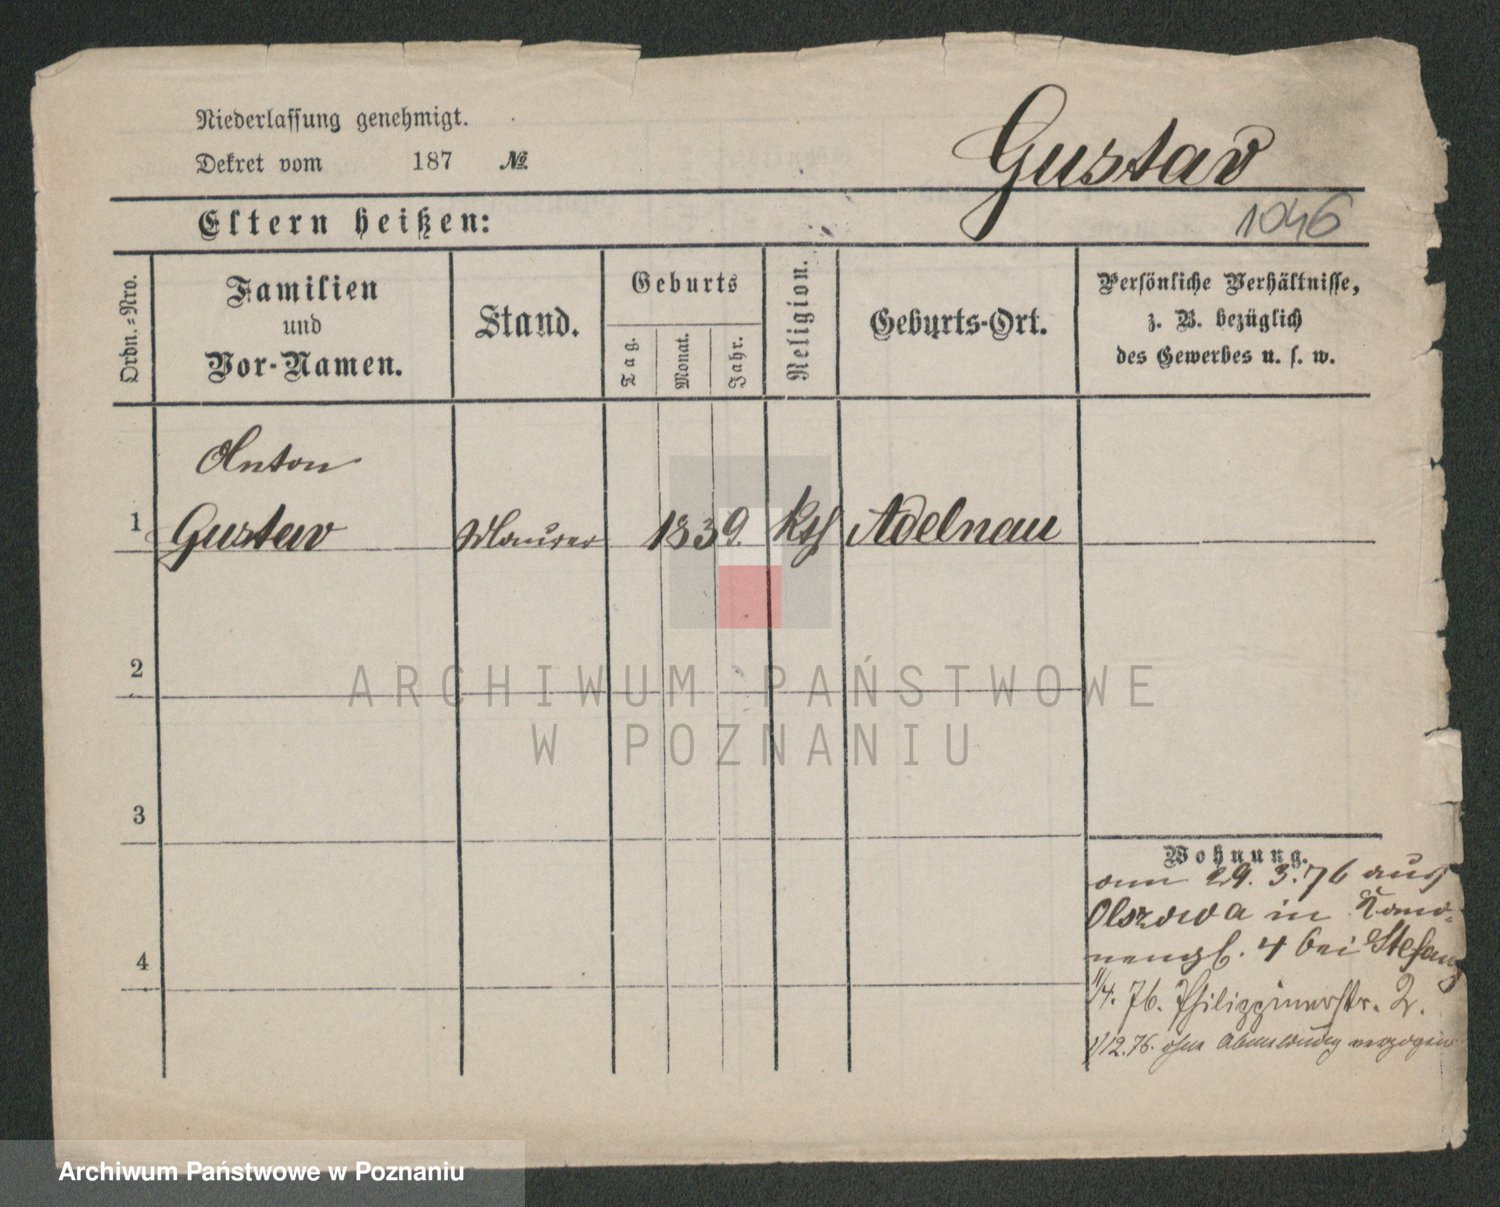 Niederlassung genehmigt.
Dekret vom 187 №
Gustav
Eltern heißen:
1046
Ordn.-Nro.
Familien
und
Vor-Namen.
Stand.
Geburts
Tag.
Monat.
Jahr.
Religion.
Geburts-Ort.
Persönliche Verhältnisse,
z. B. bezüglich
des Gewerbes u. s. w.
Anton
1 Gustav Maurer 1839. kth Adelnau
2
ARCHIWUM PAŃSTWOWE
W POZNANIU
3
Wohnung.
29. 3. 76 aus
Olszowa in
4
4 bei Stefan
/4. 76. Philippinerstr. 2.
1/12. 76. ohne Abmeldung verzogen
Archiwum Państwowe w Poznaniu